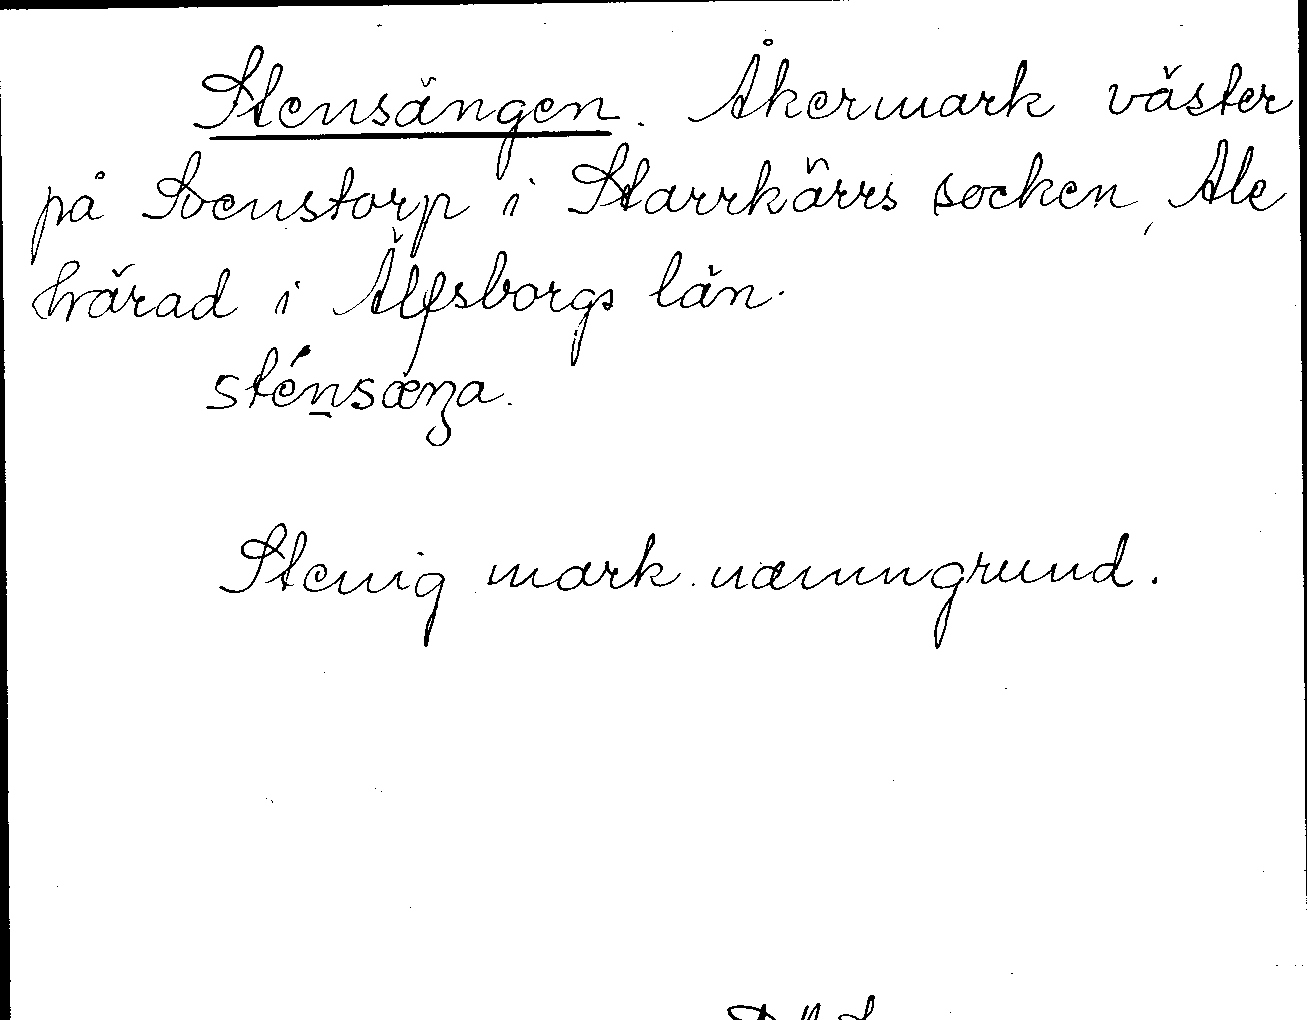 Stensängen. Åkermark väster
på Svenstorp i Starrkärrs socken, Ale
härad i Älfsborgs län.
sténsæŋa.
Stenig mark namngrund.